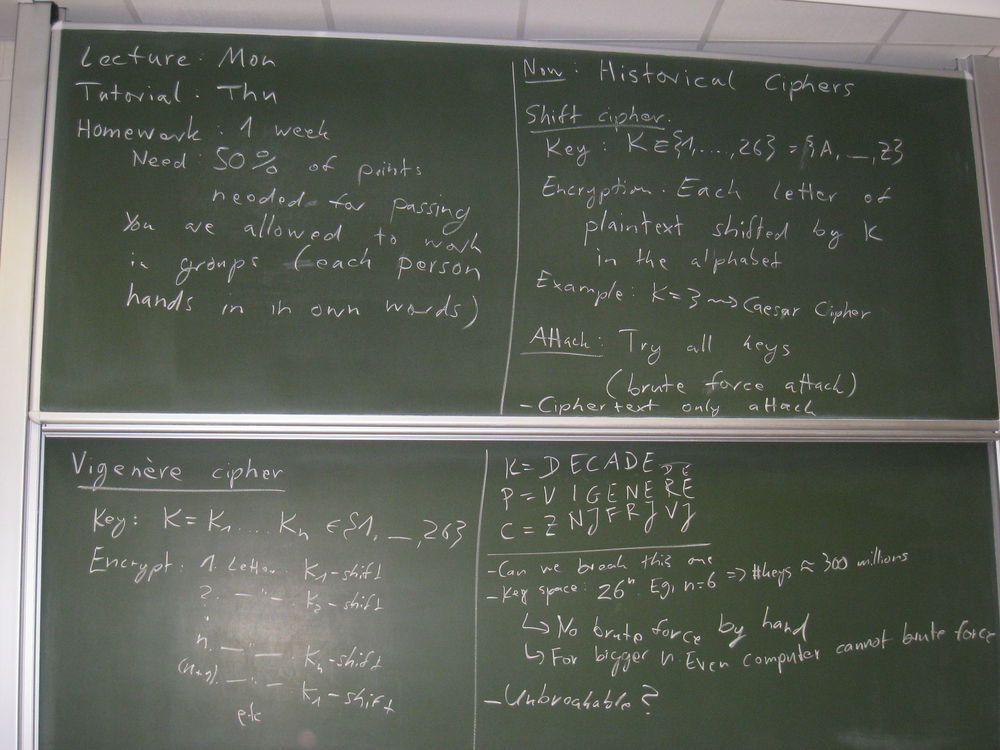 Lecture: Mon
Tutorial: Thu
Homework: 1 week
Need: 50% of points
needed for passing
You are allowed to work
in groups (each person
hands in in own words)
Now: Historical Ciphers
Shift cipher:
Key: K∈{1,...,26} = {A, _, Z}
Encryption: Each letter of
plaintext shifted by K
in the alphabet
Example: K=3 ⇝ Caesar Cipher
Attack: Try all keys
(brute force attack)
- Ciphertext only attack
Vigenère cipher
Key: K = K₁ .... Kₙ ∈{1, _, 26}
Encrypt: 1. Letter: K₁-shift
2. — " — K₂-shift
⋮
n. — " — Kₙ-shift
(n+1). — " — K₁-shift
etc
K = DECADE DE
P = VIGENERE
C = ZNJFRJVJ
- Can we break this one
- Key space: 26ⁿ Eg, n=6 => #keys ≈ 300 millions
↳ No brute force by hand
↳ For bigger n. Even computer cannot brute force
- Unbreakable?